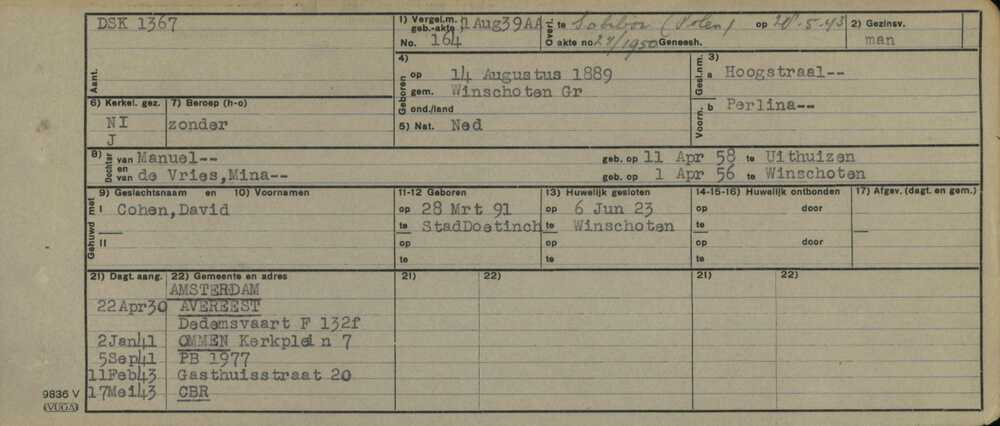 DSK 1367
Aant.
1) Vergel.m. geb.-akte, 1 Aug39AA
No. 164
Overl. te Sobibor (Polen) op 28-5-43
O akte no 27/1950 Geneesh.
2) Gezinsv.
man
4)
Geboren
op 14 Augustus 1889
gem. Winschoten Gr
ond./land
5) Nat. Ned
3)
Gesl.nm.
a Hoogstraal--
Voorn.
b Perlina--
6) Kerkel. gez. 7) Beroep (h-o)
NI zonder
J
8)
Dochter
van Manuel-- geb. op 11 Apr 58 te Uithuizen
en
van de Vries,Mina-- geb. op 1 Apr 56 te Winschoten
9) Geslachtsnaam en 10) Voornamen 11-12 Geboren 13) Huwelijk gesloten 14-15-16) Huwelijk ontbonden 17) Afgev. (dagt. en gem.)
Gehuwd met
I Cohen,David op 28 Mrt 91 op 6 Jun 23 op door
te StadDoetinch te Winschoten te
II op op op door
te te te
21) Dagt. aang. 22) Gemeente en adres 21) 22) 21) 22)
AMSTERDAM
22Apr30 AVEREEST
Dedemsvaart F 132f
2Jan41 OMMEN Kerkplein 7
5Sep41 PB 1977
11Feb43 Gasthuisstraat 20
17Mei43 CBR
9836 V
(VUGA)